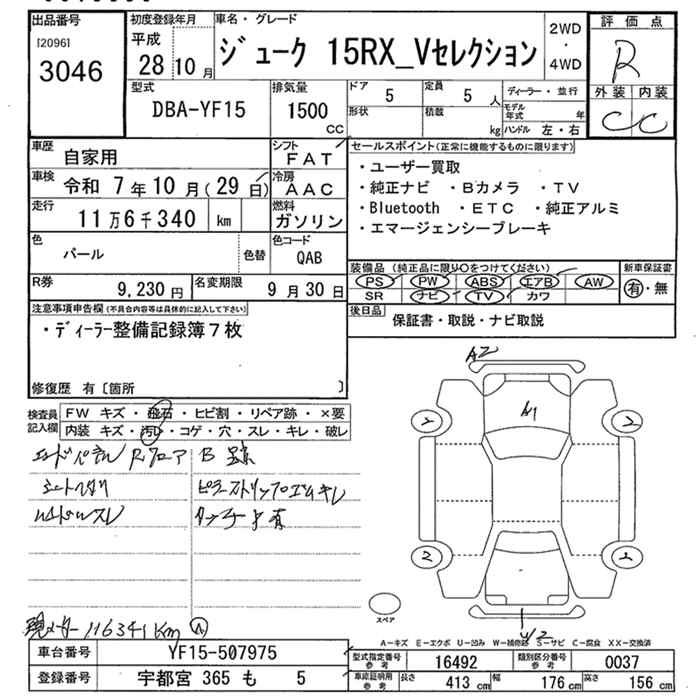 出品番号
[2096]
3046
初度登録年月
平成
28年10月
車名・グレード
ジューク 15RX_Vセレクション
2WD
・
4WD
評価点
R
外装 内装
C C
型式
DBA-YF15
排気量
1500
CC
ドア
5
定員
5 人
形状
積載
kg
ディーラー・並行
モデル年式 年
ハンドル 左・右
車歴
自家用
シフト
FAT
車検
令和 7年10月(29日)
冷房
AAC
走行
11万6千340 km
燃料
ガソリン
色
パール
色替
色コード
QAB
R券
9,230円
名変期限
9月30日
セールスポイント(正常に機能するものに限ります)
・ユーザー買取
・純正ナビ ・Bカメラ ・TV
・Bluetooth ・ETC ・純正アルミ
・エマージェンシーブレーキ
装備品(純正品に限り○をつけてください)
PS PW ABS エアB AW
SR ナビ TV カワ
新車保証書
有・無
後日品
保証書・取説・ナビ取説
注意事項申告欄(不具合内容等は具体的に記入して下さい)
・ディーラー整備記録簿7枚
修復歴 有[箇所 ]
検査員記入欄
FW キズ・飛石・ヒビ割・リペア跡・×要
内装 キズ・汚れ・コゲ・穴・スレ・キレ・破レ
ピラーストリップゴムキレ
現メーター116341Km
A2
W1
2
2
2
2
W2
スペア
A-キズ E-エクボ U-凹み W-補修跡 S-サビ C-腐食 XX-交換済
車台番号
YF15-507975
登録番号
宇都宮 365 も 5
型式指定番号
参考
16492
類別区分番号
参考
0037
車庫証明用
参考
長さ
413 cm
幅
176 cm
高さ
156 cm